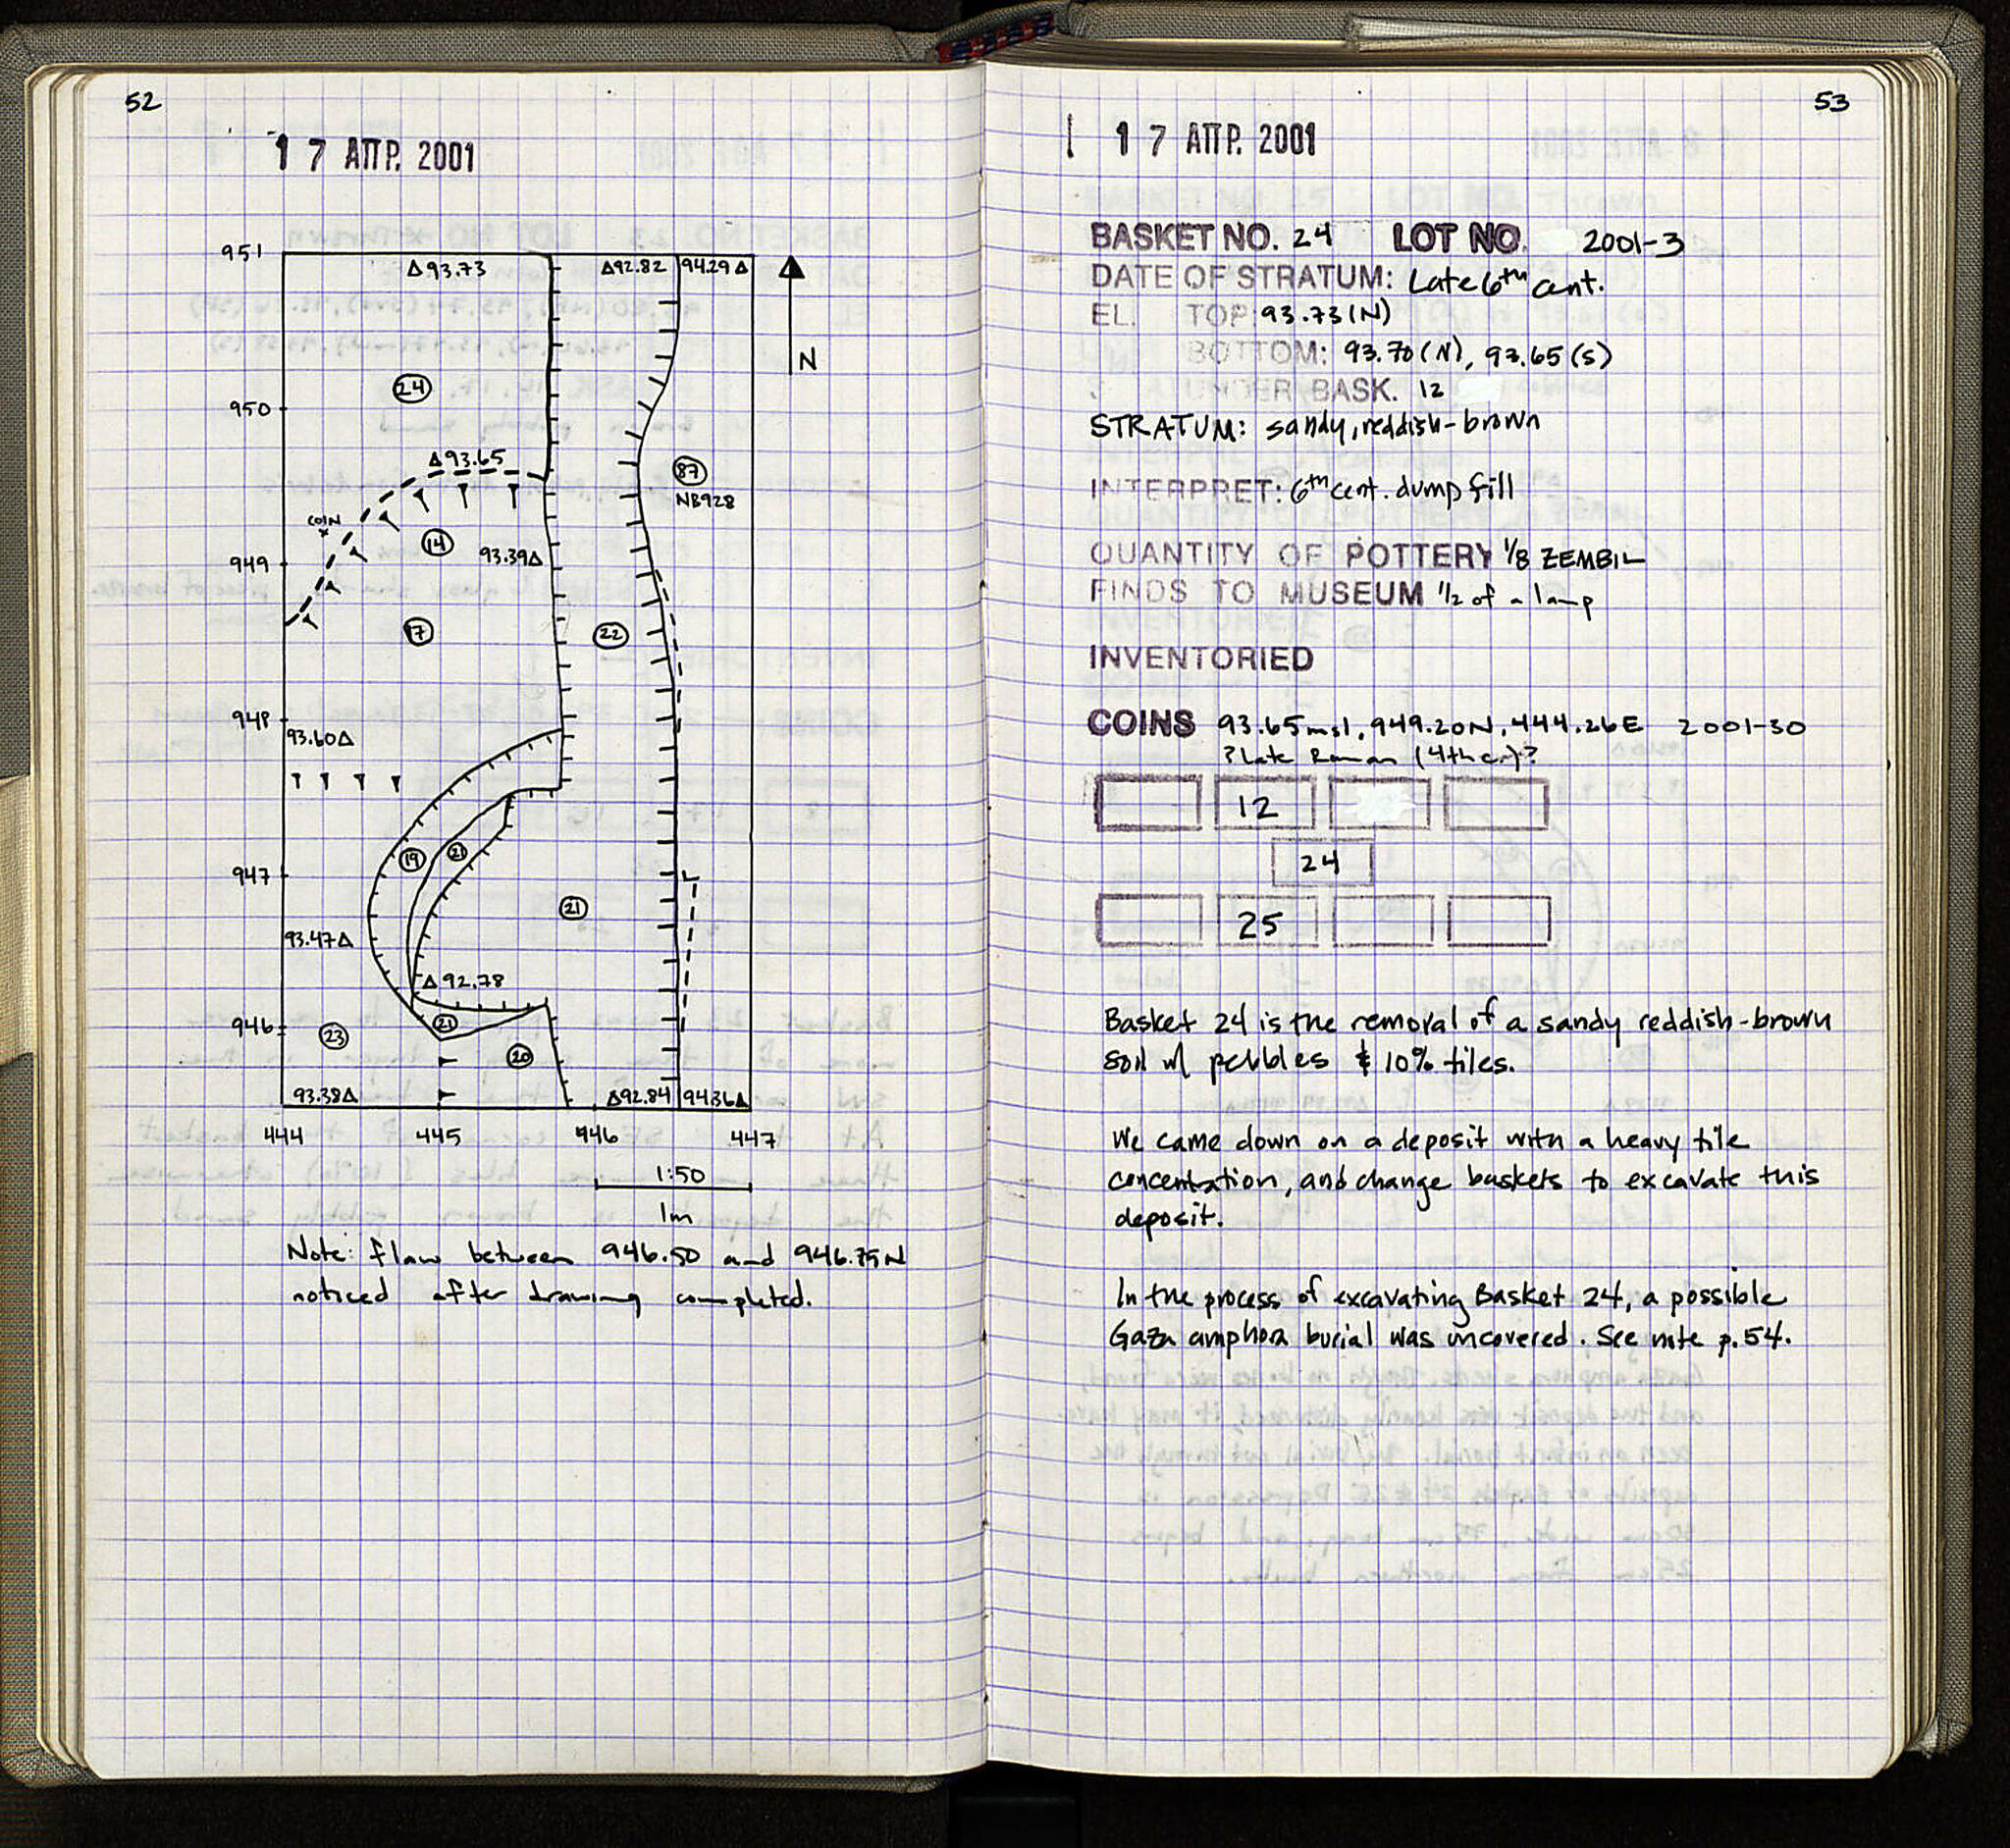 52
17 ΑΠΡ. 2001
951
Δ93.73
Δ92.82
94.29Δ
N
24
950
Δ93.65
87
NB928
COIN
x
14
93.39Δ
949
17
22
948
93.60Δ
19
21
947
21
93.47Δ
Δ92.78
946
23
21
20
93.38Δ
Δ92.84
94.36Δ
444
445
446
447
1:50
1m
Note: flaw between 946.50 and 946.75N
noticed after drawing completed.
53
17 ΑΠΡ. 2001
BASKET NO. 24 LOT NO. 2001-3
DATE OF STRATUM: Late 6th cent.
EL. TOP: 93.73(N)
BOTTOM: 93.70(N), 93.65(S)
UNDER BASK. 12
STRATUM: sandy, reddish-brown
INTERPRET: 6th cent. dump fill
QUANTITY OF POTTERY 1/8 ZEMBIL
FINDS TO MUSEUM 1/2 of a lamp
INVENTORIED
COINS 93.65msl, 949.20N, 444.26E 2001-30
? Late Roman (4th c.)?
12
24
25
Basket 24 is the removal of a sandy reddish-brown
soil w/ pebbles & 10% tiles.
We came down on a deposit with a heavy tile
concentration, and change baskets to excavate this
deposit.
In the process of excavating Basket 24, a possible
Gaza amphora burial was uncovered. See note p.54.